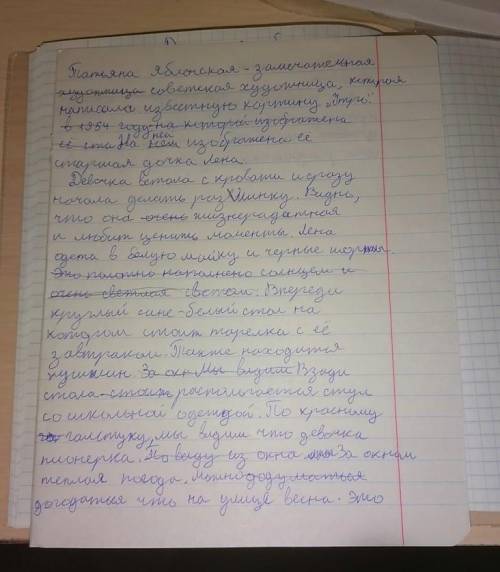 Татьяна Яблонская - замечательная
художница советская художница, которая
написала известную картину „Утро".
в 1954 году на которой изображена
её ста На ней изображена её
старшая дочка Лена.
Девочка встала с кровати и сразу
начала делать разминку. Видно,
что она очень жизнерадатная
и любит ценить моменты. Лена
одета в белую майку и черные шорты.
Это полотно наполнено солнцем и
очень светлая светом. Впереди
круглый сине-белый стол на
котором стоит тарелка с её
завтраком. Также находится
кушшин. За окн Мы видим Взади
стола стоит распологается стул
со школьной одеждой. По красному
галстуку, мы видим что девочка
пионерка. По виду из окна мы За окном
теплая погода. Можно додуматься
догодаться что на улице весна. Это